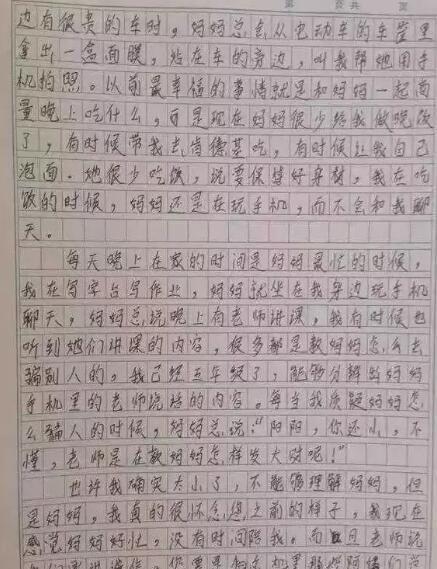 第 页 共 页
边有很贵的车时,妈妈总会从电动车的车筐里
拿出一盒面膜,站在车的旁边,叫我帮她用手
机拍照。以前最幸福的事情就是和妈妈一起商
量晚上吃什么,可是现在妈妈很少给我做晚饭
了,有时候带我去肯德基吃,有时候让我自己
泡面。她很少吃饭,说要保持好身材,我在吃
饭的时候,妈妈还是在玩手机,而不会和我聊
天。
每天晚上在家的时间是妈妈最忙的时候,
我在写字台写作业,妈妈就坐在我身边玩手机
聊天,妈妈总说晚上有老师讲课,我有时候也
听到她们讲课的内容,很多都是教妈妈怎么去
骗别人的,我已经五年级了,能够分辨出妈妈
手机里的老师说话的内容。每当我质疑妈妈怎
么骗人的时候,妈妈总说:“阳阳,你还小,不
懂,老师是在教妈妈怎样发大财呢!”
也许我确实太小了,不能够理解妈妈,但
是妈妈,我真的很怀念您之前的样子,我现在
感觉妈妈好忙,没有时间陪我。而且老师说